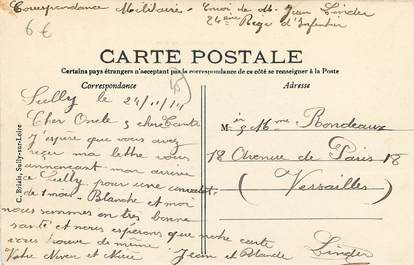 Correspondance Militaire - Envoi de M. Jean Linder
24ème Regt d'Infanterie
6€
CARTE POSTALE
Certains pays étrangers n'acceptant pas la correspondance de ce côté se renseigner à la Poste
Correspondance
Adresse
Sully le 24/11/14
Cher Oncle & cher Tante
J'espère que vous avez
reçu ma lettre vous
annonçant mon arrivée
à Sully pour une convalet.
de 1 mois. Blanche et moi
nous sommes en très bonne
santé et nous espérons que notre carte
vous trouve de même.
Votre Neveu et Nièce Jean et Blande Linder
Mr & Mme Bordeaux
18 Avenue de Paris 18
(Versailles)
C. Briais, Sully-sur-Loire